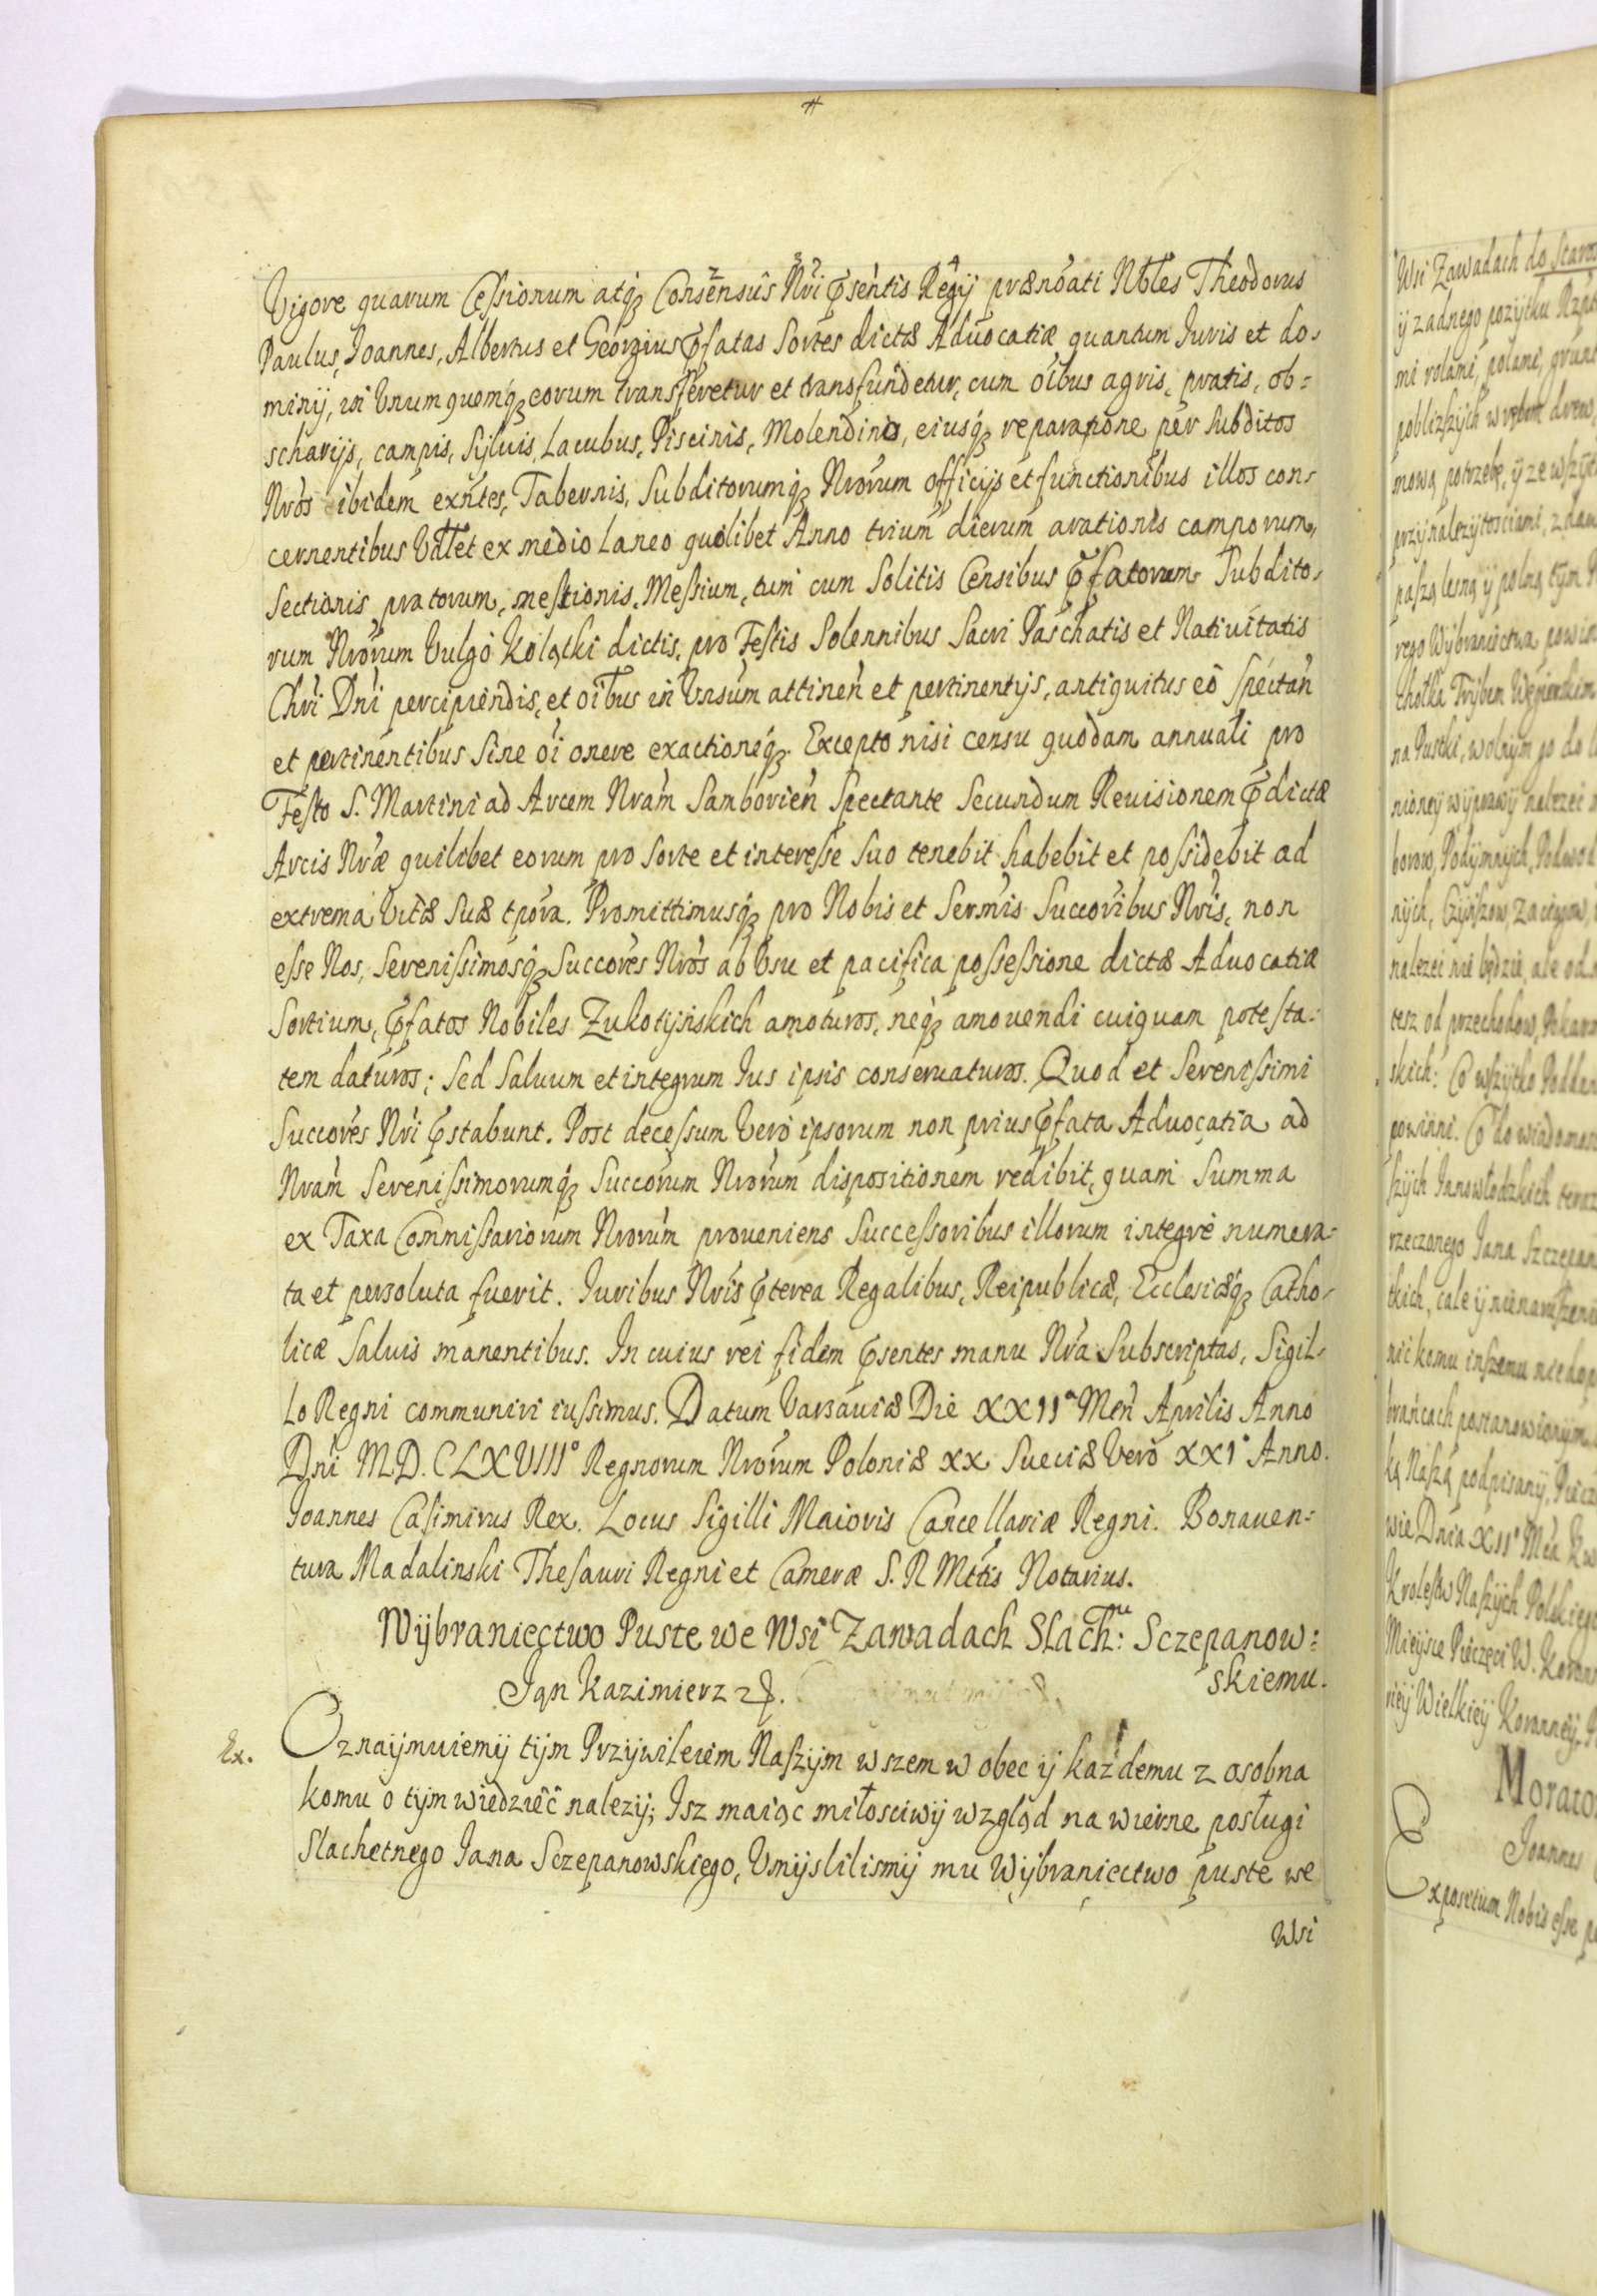 Vigore quarum Cessionum atq3 Consensûs Nrĩ ꝑsentis Regij prænoãti Nbles Theodorus
Paulus, Joannes, Albertus et Georgius ꝑfatas Sortes dictæ Aduocatiæ quantum Juris et do-
minij, in Vnum quemq3 eorum transferetur et transfundetur, cum oĩbus agris, pratis, ob=
scharijs, campis, Syluis, Lacubus, Piscinis, Molendinis, eiusq3 reparatione per Subditos
Nrõs ibidem exñtes, Tabernis, Subditorumq3 Nrõrum officijs et functionibus illos con-
cernentibus Vdlet ex medio Laneo quolibet Anno trium dierum arationis camporum,
Sectionis pratorum, mestionis, Messium, tum cum Solitis Censibus ꝑfatorum Subdito-
rum Nrõrum Vulgo Kolątki dictis, pro Festis Solennibus Sacri Paschatis et Natiuitatis
Chrĩ Dnĩ percipiendis, et oĩbus in Vnsum attineñ et pertinentijs, antiquitus eò Spectañ
et pertinentibus Sine oĩ onere exactioneq3. Excepto nisi censu quodam annuali pro
Festo S. Martini ad Arcem Nrãm Samborieñ Spectante Secundum Reuisionem ꝑdictæ
Arcis Nrǣ quilibet eorum pro Sorte et interesse Suo tenebit habebit et possidebit ad
extrema Vitæ Suæ tpõra. Promittimusq3 pro Nobis et Sermĩs Succorĩbus Nrĩs, non
esse Nos, Serenissimosq3 Succorẽs Nrõs ab Vsu et pacifica possessione dictæ Aduocatiæ
Sortium, ꝑfatos Nobiles Zukotyńskich amoturos, neq3 amouendi cuiquam potesta=
tem daturos; Sed Saluum et integrum Jus ipsis conseruaturos. Quod et Serenissimi
Succorẽs Nrĩ ꝑstabunt. Post decessum Verò ipsorum non prius ꝑfata Aduocatia ad
Nrãm Serenissimorumq3 Succorũm Nrõrum dispositionem redibit, quam Summa
ex Taxa Commissariorum Nrõrum proueniens Successoribus illorum integrè numera=
ta et persoluta fuerit. Juribus Nrĩs ꝑterea Regalibus, Reipublicæ, Ecclesiæq3 Catho-
licæ Saluis manentibus. In cuius rei fidem ꝑsentes manu Nrã Subscriptas, Sigil-
lo Regni communiri iussimus. Datum Varsauiæ Die XXIIª Meñ Aprilis Anno
Dnĩ M.D.CLXVIIIº Regnorum Nrõrum Poloniæ XX Sueciæ Verò XXIº Anno.
Joannes Casimirus Rex. Locus Sigilli Maioris Cancellariæ Regni. Bonauen=
tura Madalinski Thesauri Regni et Cameræ S. R. Mttĩs Notarius.
Wybraniectwo Puste we Wsi Zawadach Slachu: Sczepanow=
Jan Kazimierz skiemu.
Ex. Oznaymuiemy tym Przywileiem Naszym wszem w obec ij każdemu z osobna
komu o tym wiedzieć nalezy; Isz maiąc miłosciwy wzgląd na wierne posługi
Slachetnego Jana Sczepanowskiego, Vmyslilismy mu Wybraniectwo puste we
Wsi